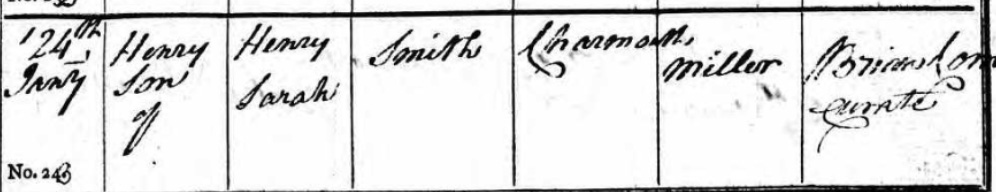 24th
Janry
Henry
Son
of
Henry
Sarah
Smith
Charmouth
Miller
Curate
No. 243